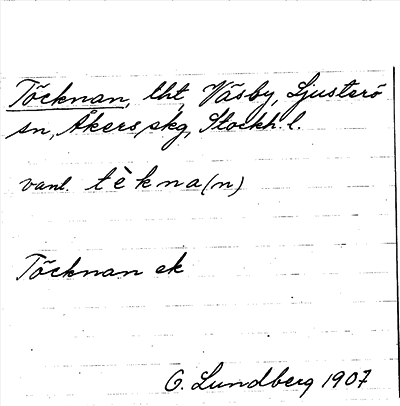 Töcknan, lht, Väsby, Ljusterö
sn, Åkers skg, Stockh. l.
vanl. tèkna(n)
Töcknan ek
G. Lundberg 1907